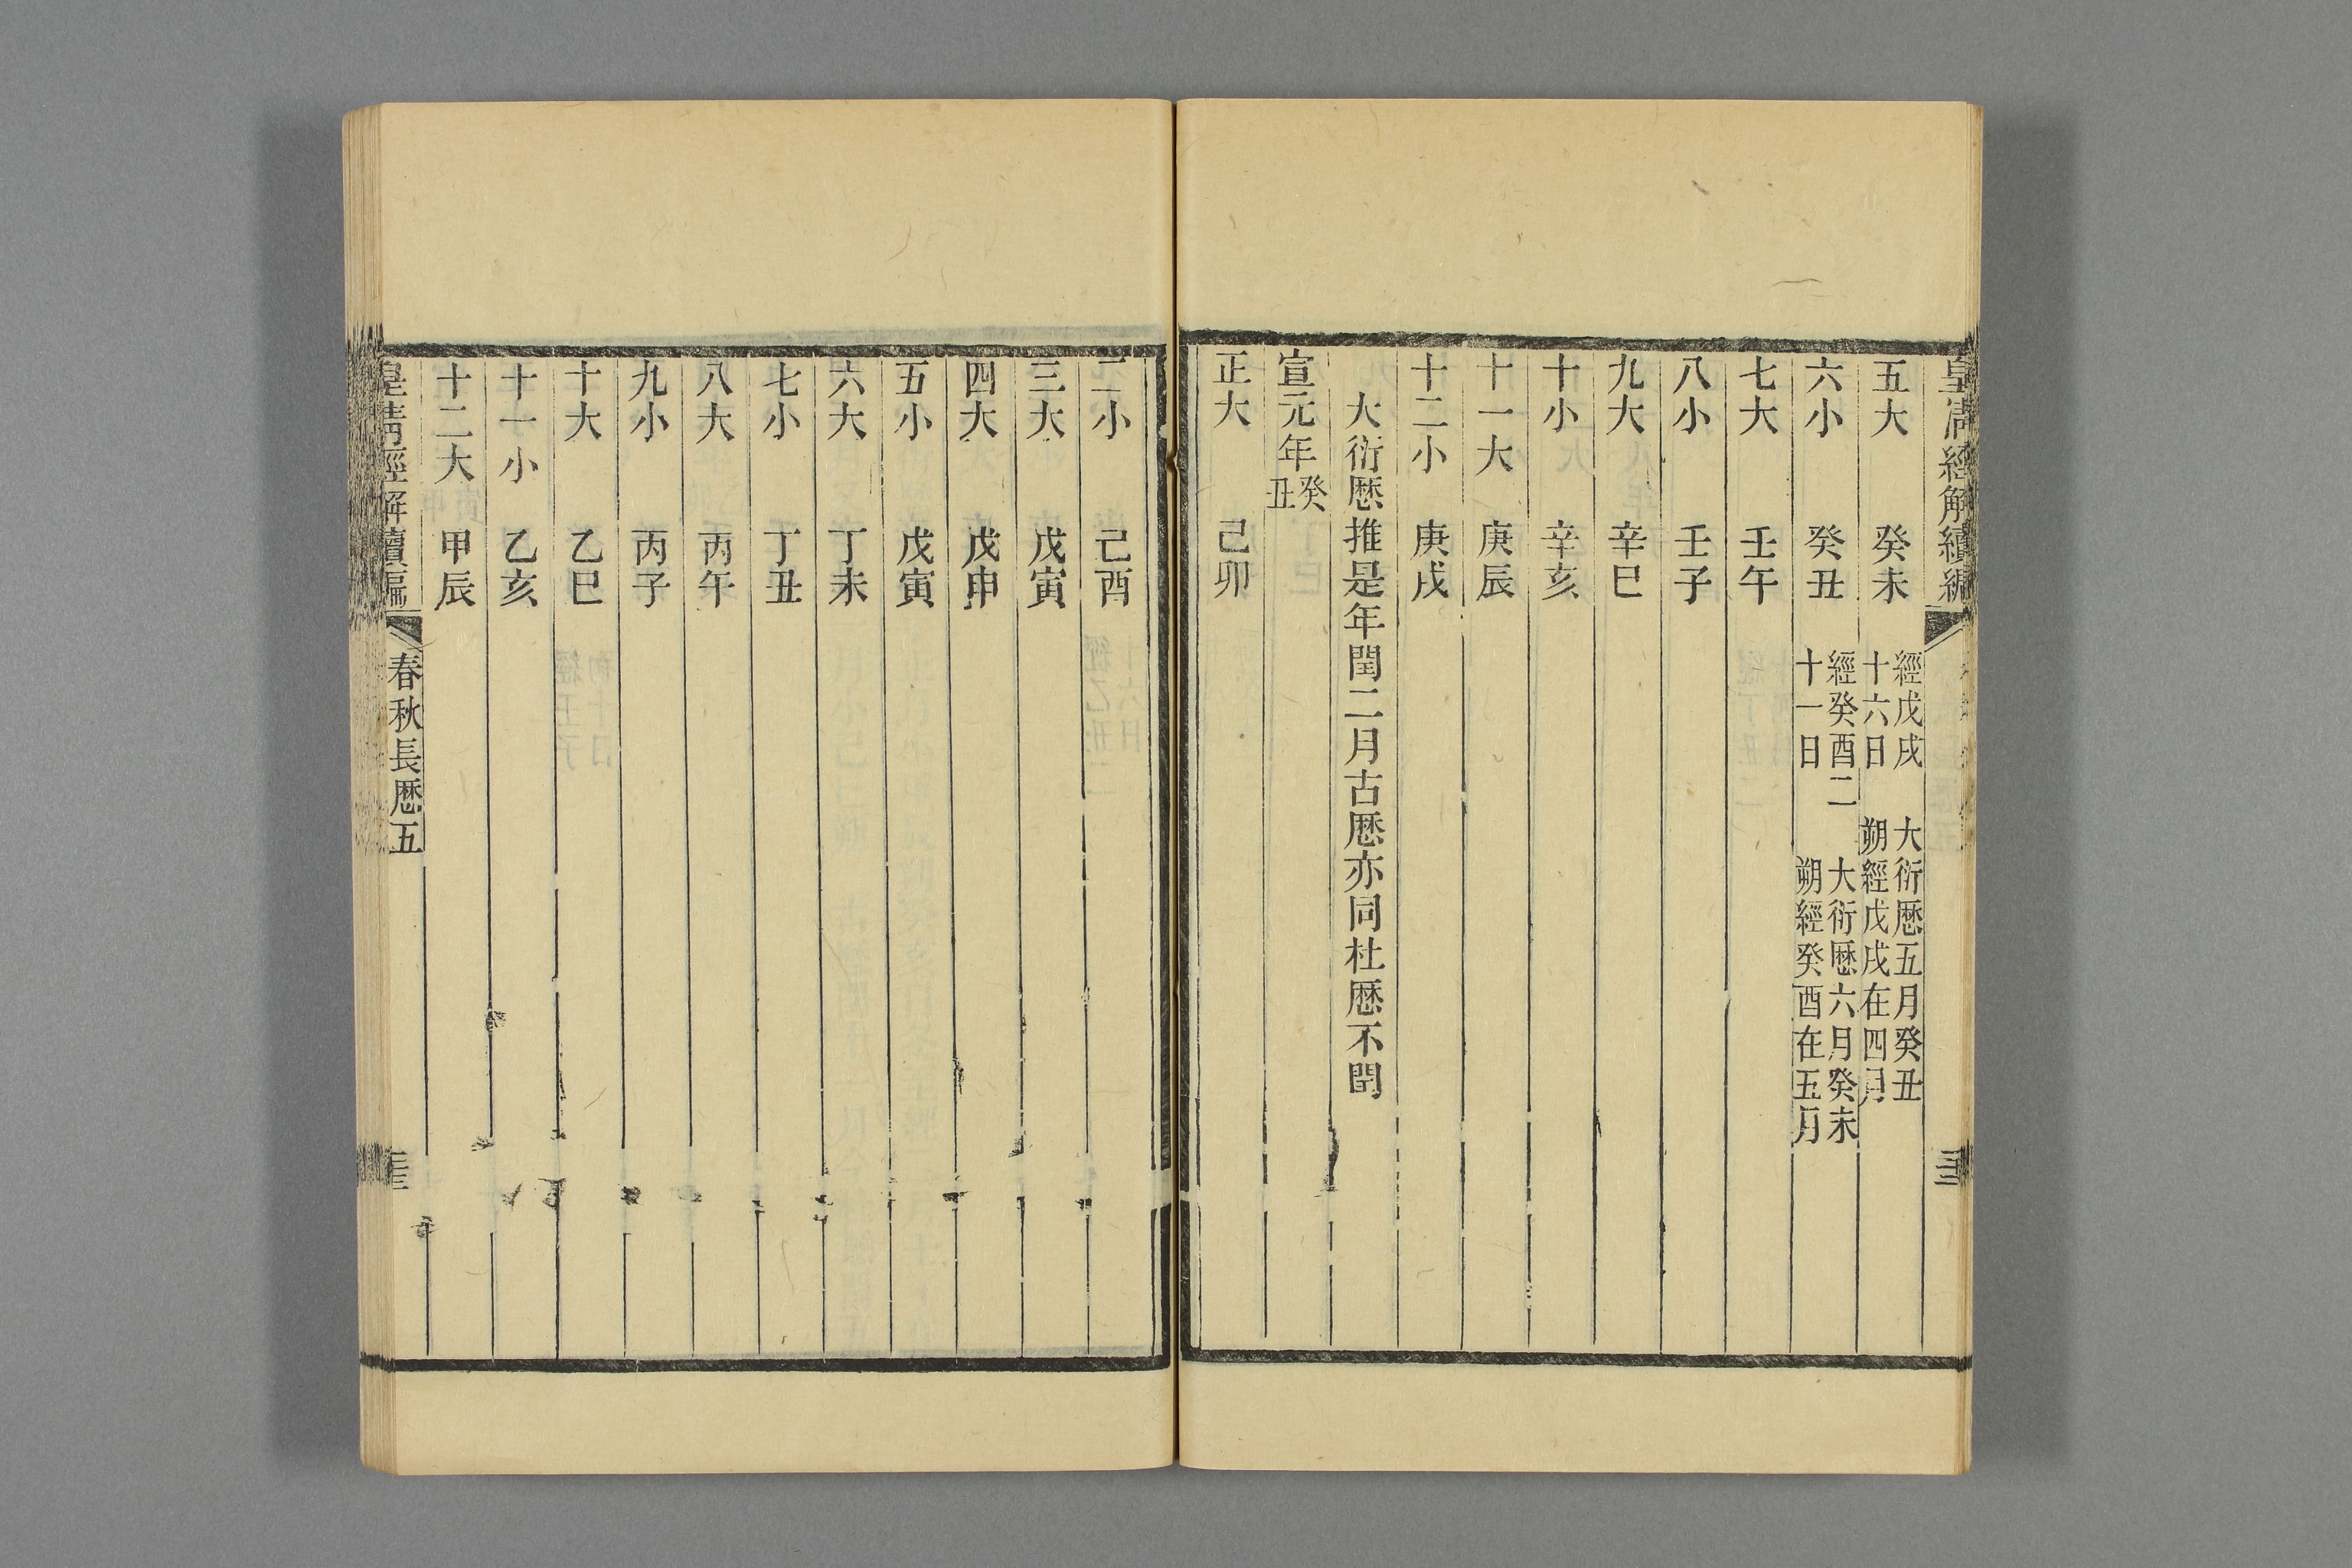 皇清經解續編
五大 癸未 經戊戌十六日 大衍厯五月癸丑朔經戊戌在四月
六小 癸丑 經癸酉二十一日 大衍厯六月癸未朔經癸酉在五月
七大 壬午
八小 壬子
九大 辛巳
十小 辛亥
十一大 庚辰
十二小 庚戌
大衍厯推是年閏二月古厯亦同杜厯不閏
宣元年癸丑
正大 己卯
二小 己酉
三大 戊寅
四大 戊申
五小 戊寅
六大 丁未
七小 丁丑
八大 丙午
九小 丙子
十大 乙巳
十一小 乙亥
十二大 甲辰
皇清經解續編 春秋長厯五